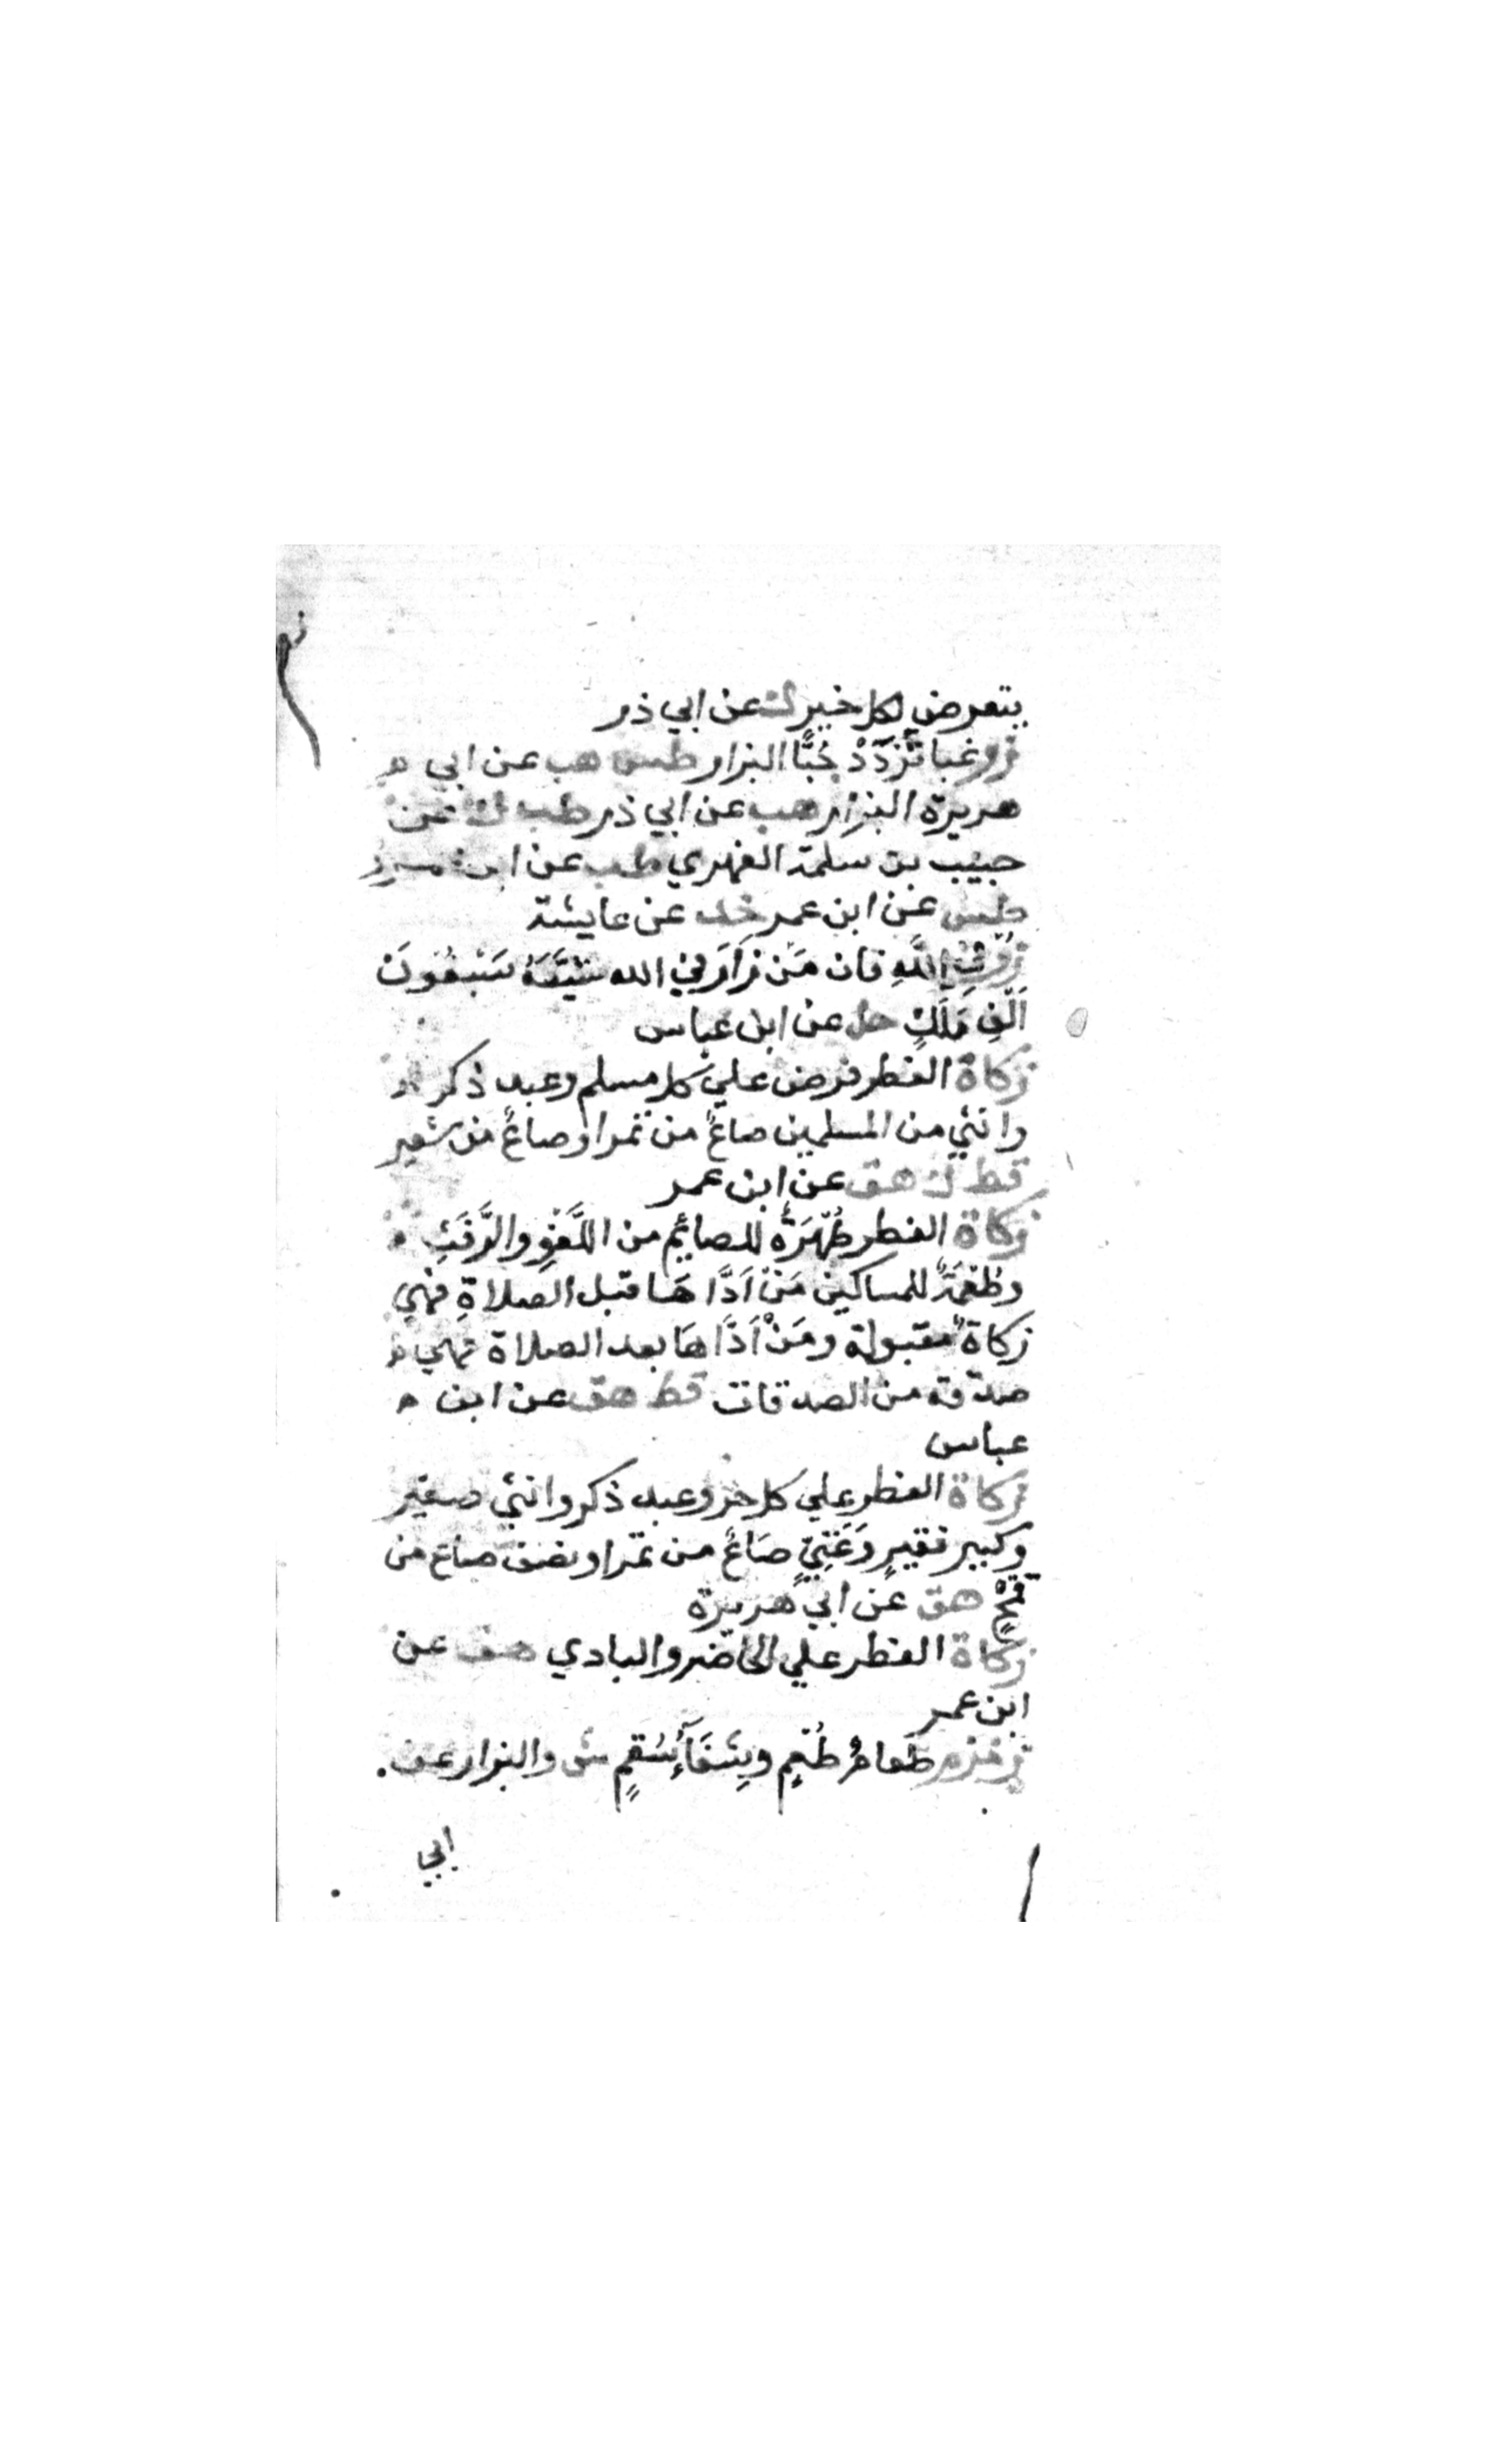 يتعرض لكل خير ك عن ابي ذر
زر غبا تَزْدَدْ حُبًّا البزار طس هب عن ابي ه
هريرة البزار هب عن ابي ذر طب ك عن
حبيب بن سَلمة الفهري طب عن ابن
طس عن ابن عمر خط عن عايشة
زُرْ فِي اللَّهِ فان مَن زَارَ في الله شَيَّعَهُ سَبْعُونَ
أَلْفِ مَلَكٍ حل عن ابن عباس
زكاة الفطر فرض علي كل مسلم وعبد ذكر
وانثي من المسلمين صاعٌ من تمر او صاعٌ من شعير
قط ك هق عن ابن عمر
زكاة الفطر طُهْرَةٌ للصايم من اللَّغْوِ والرَّفَثِ
وطُعْمَةٌ للمساكين مَنْ اَدَّا هَا قبل الصلاةِ فهي
زكاةٌ مقبولة ومَنْ اَدَّاهَا بعد الصلاة فهي
صدقة من الصدقات قط هق عن ابن
عباس
زكاة الفطر علي كل حر وعبد ذكر وانثي صغير
وكبير فقيرٍ وَغَنِيٍّ صَاعٌ من تمر او نصف صاع من
قَمْحٍ هق عن ابي هريرة
زكاة الفطر علي الحاضر والبادي هق عن
ابن عمر
زمزم طَعامُ طُعْمٍ وشِفَآءُ سُقْمٍ ش والبزار عن
ابي